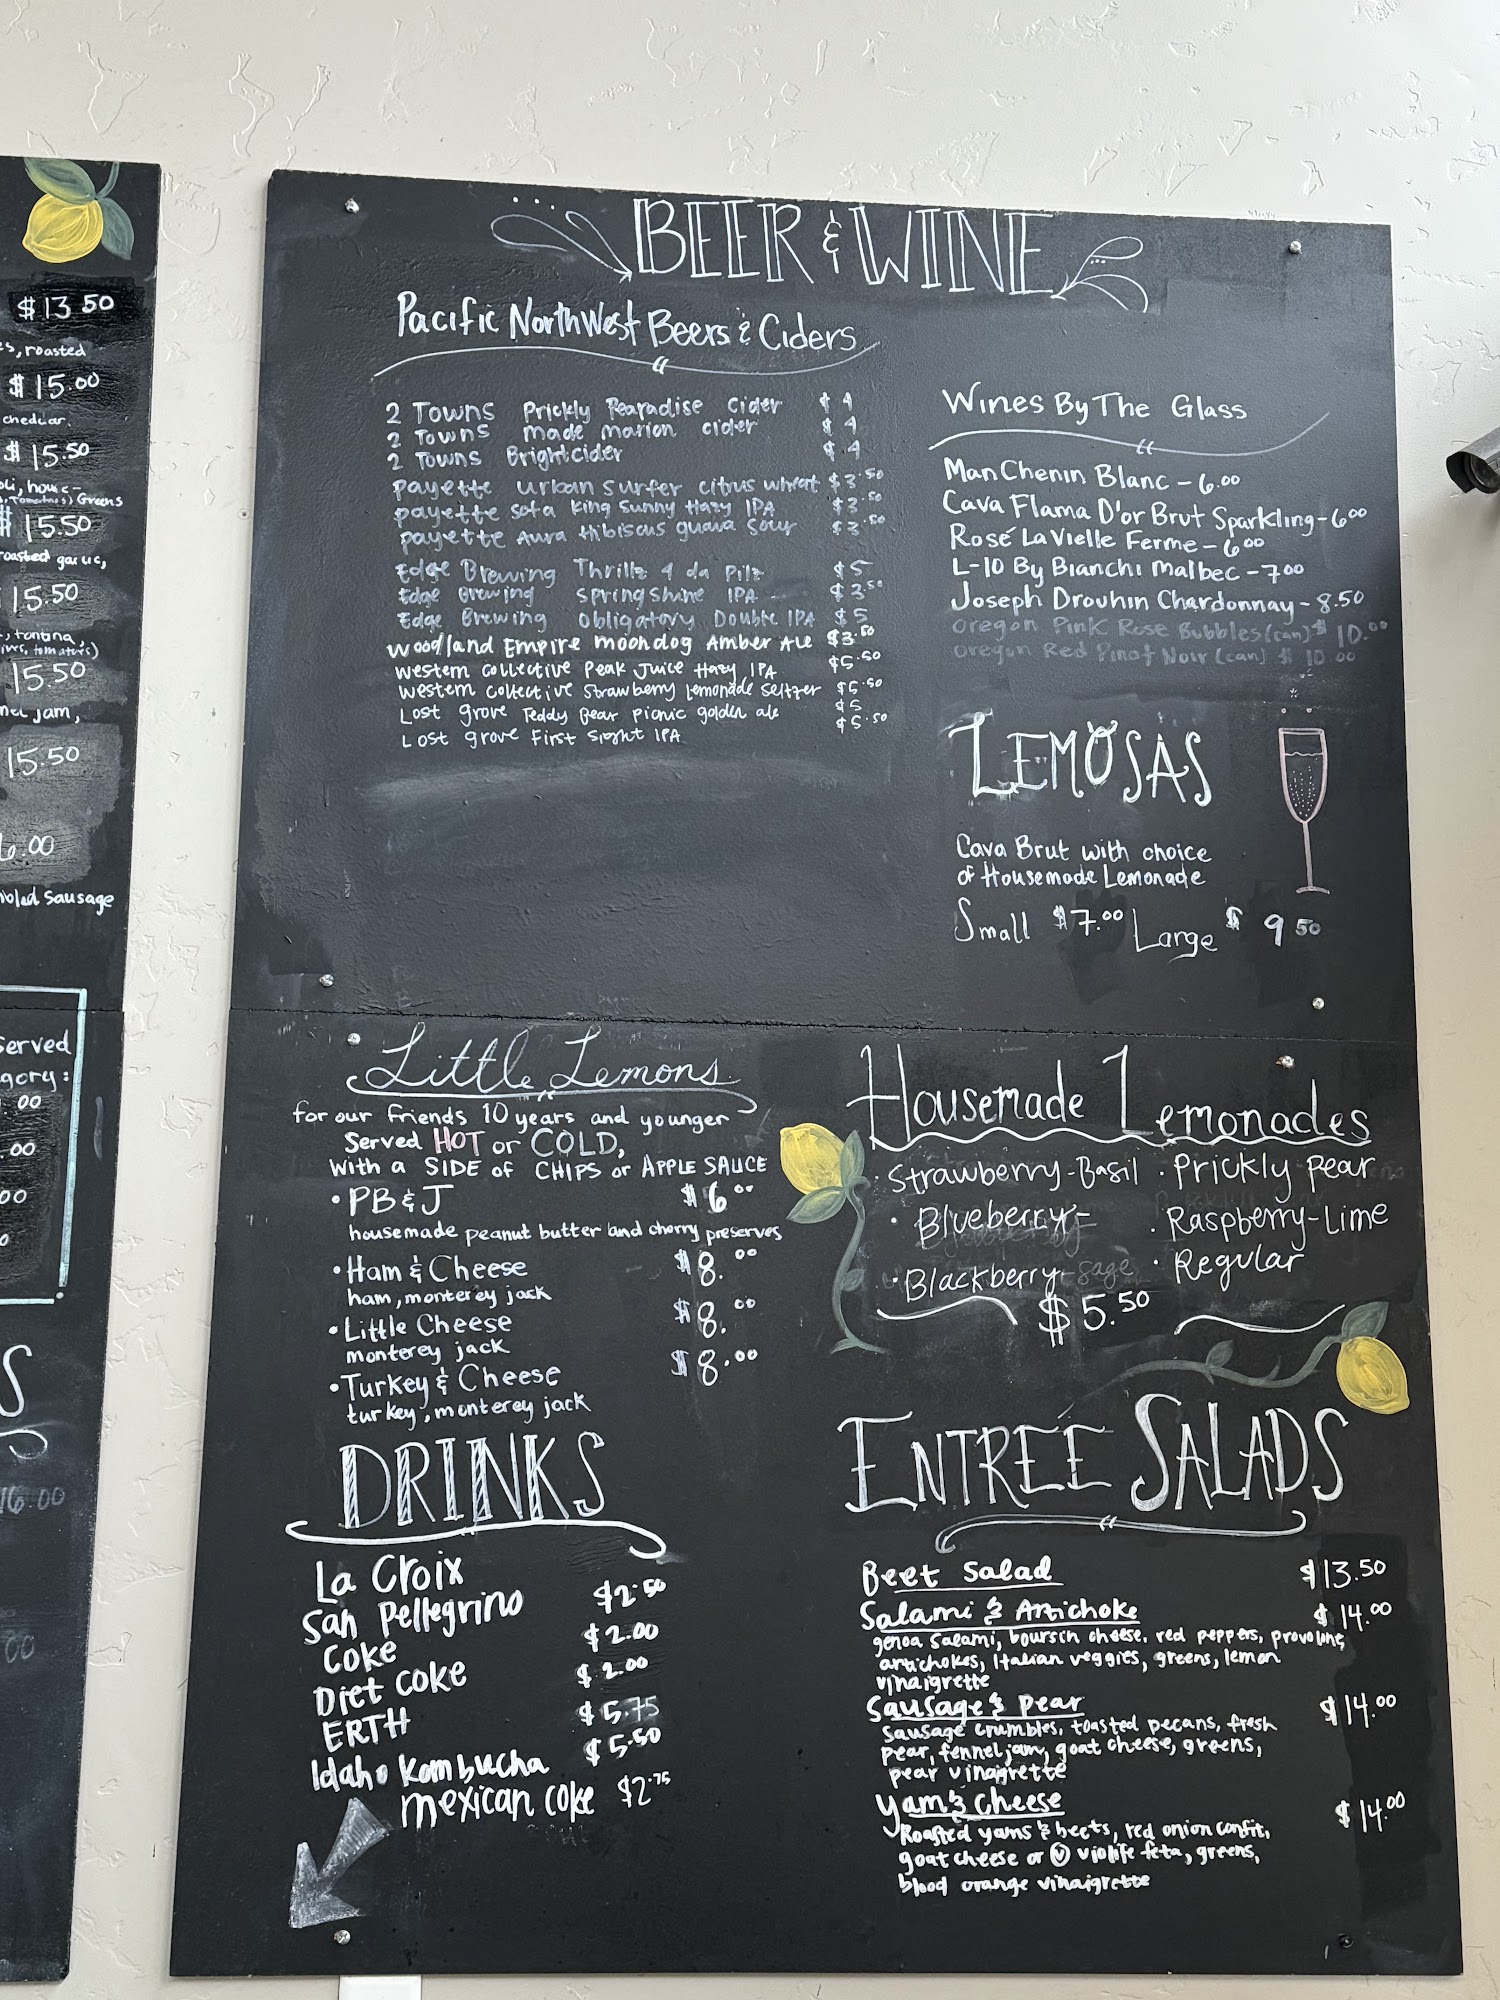 $13.50
es, roasted
$15.00
chedcar.
$15.50
Greens
$15.50
roasted garlic,
15.50
, fontina,
15.50
nel jam,
15.50
6.00
mbled Sausage
Served
gory:
.00
.00
00
S
16.00
00
BEER & WINE
Pacific NorthWest Beers & Ciders
2 Towns Prickly Pearadise Cider $4
2 Towns made marion cider $4
2 Towns Brightcider $4
payette urban surfer citrus wheat $3.50
payette sofa king Sunny Hazy IPA $3.50
payette Aura Hibiscus guava sour $3.50
Edge Brewing Thrillz 4 da Pilz $5
Edge Brewing Springshine IPA $3.50
Edge Brewing Obligatory Double IPA $5
Woodland Empire moondog Amber Ale $3.50
Western Collective Peak Juice Hazy IPA $5.50
Western Collective Strawberry lemonade Seltzer $5.50
Lost grove Teddy Bear picnic golden ale $5
Lost grove First Sight IPA $5.50
Wines By The Glass
Man Chenin Blanc - 6.00
Cava Flama D'or Brut Sparkling - 6.00
Rosé La Vielle Ferme - 6.00
L-10 By Bianchi malbec - 7.00
Joseph Drouhin Chardonnay - 8.50
Oregon Pink Rose Bubbles (can) $10.00
Oregon Red Pinot Noir (can) $10.00
LEMOSAS
Cava Brut with choice
of Housemade Lemonade
Small $7.00 Large $9.50
Little Lemons
for our friends 10 years and younger
Served HOT or COLD,
with a SIDE of CHIPS or APPLE SAUCE
• PB & J $6.00
housemade peanut butter and cherry preserves
• Ham & Cheese $8.00
ham, monterey jack
• Little Cheese $8.00
monterey jack
• Turkey & Cheese $8.00
turkey, monterey jack
Housemade Lemonades
• Strawberry-Basil • Prickly Pear
• Blueberry- • Raspberry-Lime
• Blackberry-Sage • Regular
$5.50
DRINKS
La Croix
San pellegrino $2.50
Coke $2.00
Diet Coke $2.00
ERTH $5.75
Idaho Kombucha $5.50
mexican coke $2.75
ENTRÉE SALADS
Beet Salad $13.50
Salami & Artichoke $14.00
genoa salami, boursin cheese, red peppers, provolone,
artichokes, Italian veggies, greens, lemon
vinaigrette
Sausage & pear $14.00
Sausage crumbles, toasted pecans, fresh
pear, fennel jam, goat cheese, greens,
pear vinaigrette
Yam & Cheese $14.00
Roasted yams & beets, red onion confit,
goat cheese or Ⓥ violife feta, greens,
blood orange vinaigrette